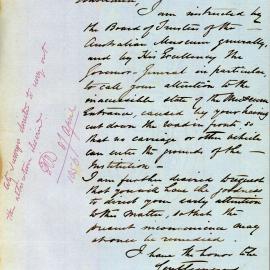 Gentlemen,
I am instructed by
the Board of Trustees of the
Australian Museum generally,
and by His Excellency The
Governor-General in particular,
to call your attention to the
inaccessible state of the Museum
Entrance, caused by your having
cut down the road in such a way
that no carriage or other vehicle
can enter the grounds of the
Institution.
I am further desired to request
that you will have the goodness
to direct your early attention
to this matter, so that the
present inconvenience may
at once be remedied.
I have the honor to be
Gentlemen
City Surveyor directed to carry out
the alteration desired.
April